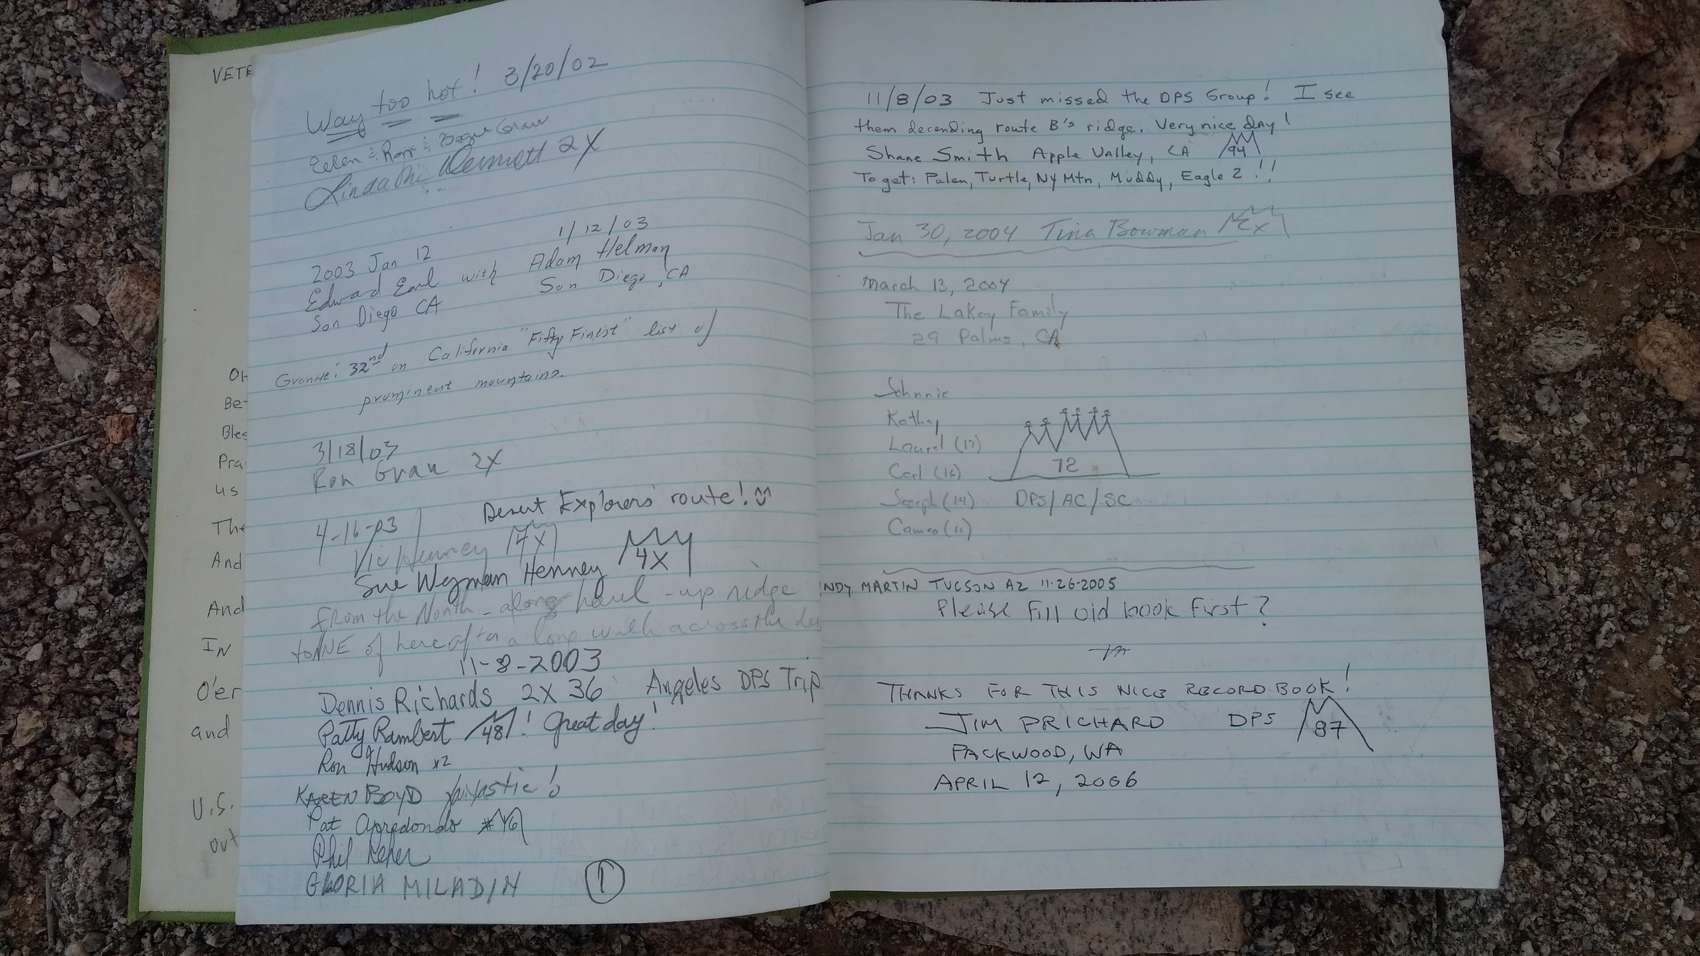 VETE
OH
Be-
Bles
Pra
us
The
And
And
IN
O'er
and
U.S.
out
Way too hot! 3/20/02
Ron
2X
2003 Jan 12 1/12/03
Edward Earl with Adam Helman
San Diego CA San Diego, CA
Granite: 32nd on California "Fifty Finest" list of
prominent mountains.
3/18/03
Ron Grau 2X
Desert Explorers' route!
4-16-03
Vic Henney 4X
Sue Wyman Henney 4X
From the North - along haul-up ridge
to NE of here after a long walk across the
11-8-2003
Dennis Richards 2X 36 Angeles DPS Trip
Patty Rambert 48! Great day!
Ron Hudson x2
KAREN BOYD fantastic!
Pat Arredondo #46
Phil Reher
GLORIA MILADIN
1
11/8/03 Just missed the DPS Group! I see
them decending route B's ridge. Very nice day!
Shane Smith Apple Valley, CA 94
To get: Palen, Turtle, NY Mtn, Muddy, Eagle 2!!
Jan 30, 2004 Tina Bowman
March 13, 2004
The Lakey Family
29 Palms, CA
Johnnie
Kathy
Laurel (17)
Carl (16)
72
Joseph (14) DPS/AC/SC
Cameo (11)
NDY MARTIN TUCSON AZ 11-26-2005
Please fill old book first?
THANKS FOR THIS NICE RECORD BOOK!
JIM PRICHARD DPS 87
PACKWOOD, WA
APRIL 12, 2006